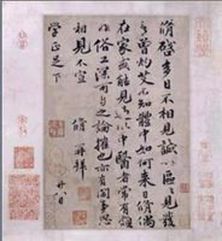 脩啓多日不相見誠以區區見發
言曾灼艾不知體中如何來日脩偶
在家或能見過此中醫者常有頗
非俗工深可與之論權也亦有閑事思
相見不宣 脩 再拜
學正足下 廿八日